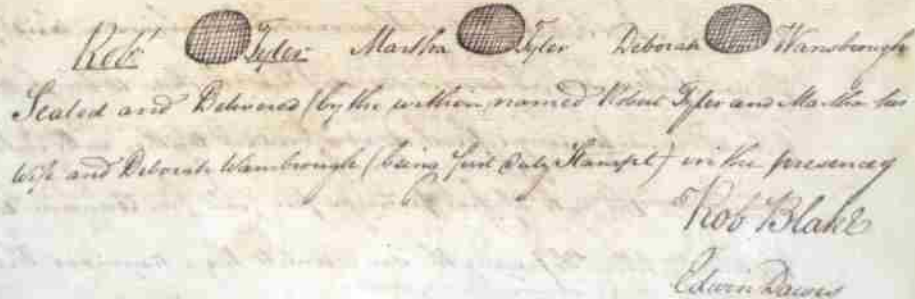 Robt Tyler Martha Tyler Deborah Wansbrough
Sealed and Delivered (by the within named Robert Tyler and Martha his
Wife and Deborah Wansbrough (being first duly Stampt) in the presence of
Rob Blake
Edwin Dawes